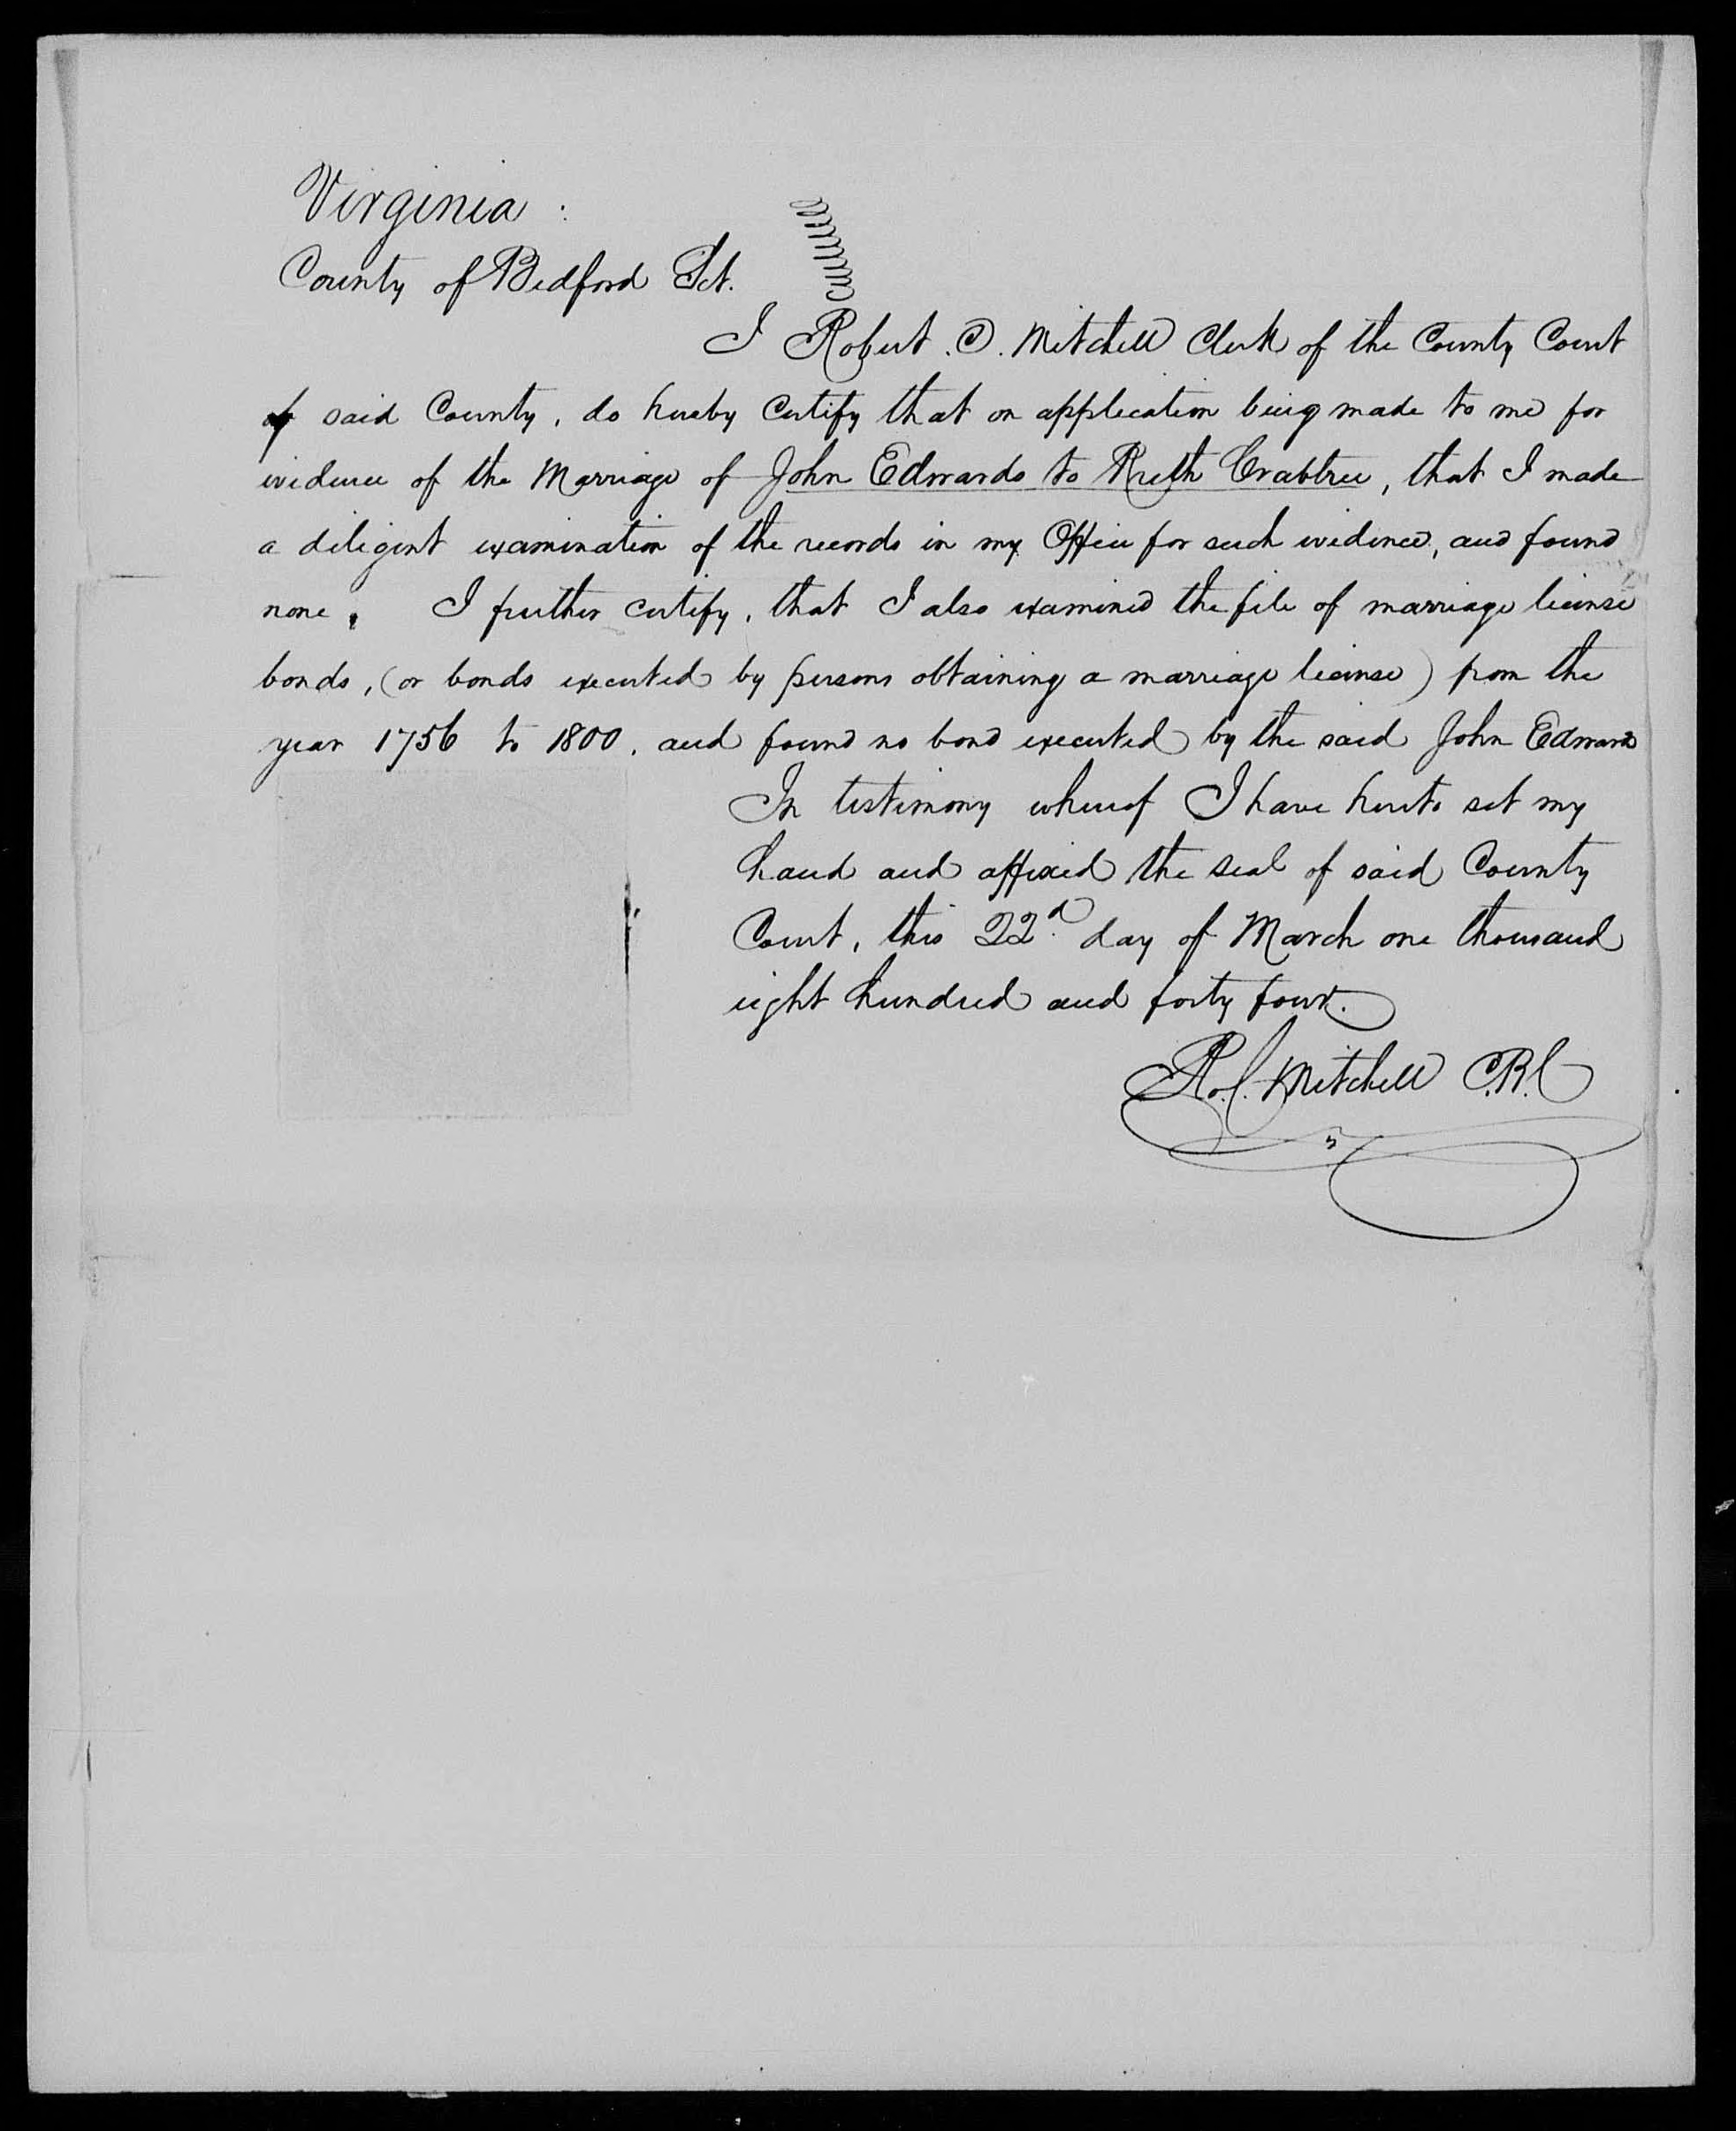 Virginia :
County of Bedford Sct.
I Robert C. Mitchell Clerk of the County Court
of said County, do hereby certify that on application being made to me for
evidence of the Marriage of John Edwards to Ruth Crabtree, that I made
a diligent examination of the records in my Office for such evidence, and found
none. I further certify, that I also examined the file of marriage license
bonds, (or bonds executed by persons obtaining a marriage license) from the
year 1756 to 1800, and found no bond executed by the said John Edwards
In testimony whereof I have hereto set my
hand and affixed the seal of said County
Court, this 22d. day of March one thousand
eight hundred and forty four.
Ro. C. Mitchell C.B.C